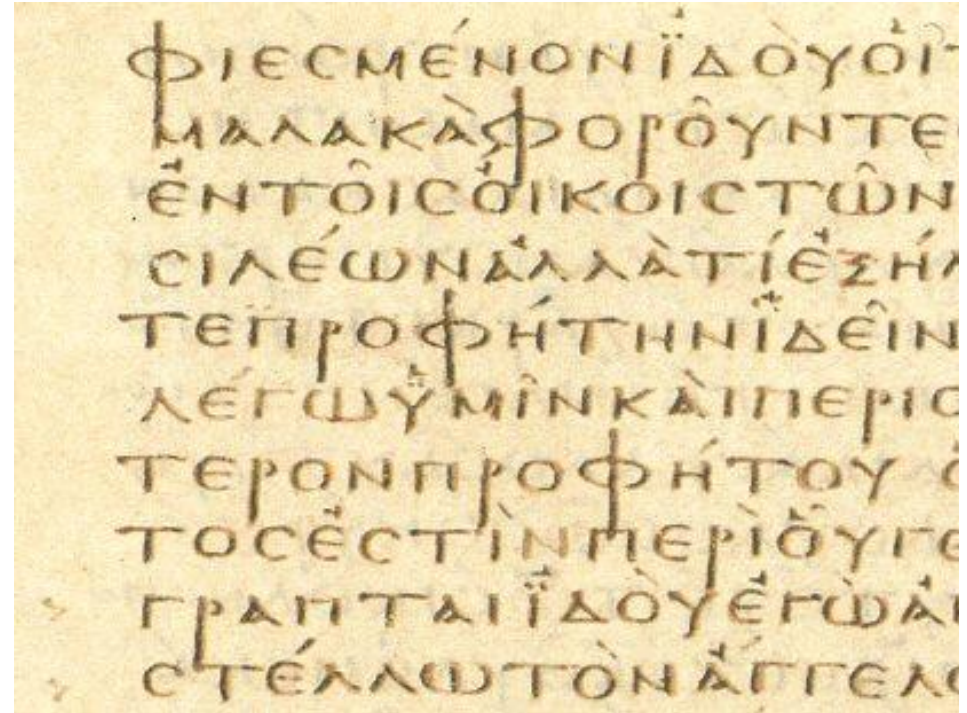 φιεϲμένονϊ̓δὸυὁιτ
μαλακὰφορο̂υντε
ἐντο̂ιϲὄικοιϲτω̂ν
ϲιλέωνἀλλὰτίἐξήλ
τεπροφήτηνϊ̓δε̂ιν
λέγωϋ̔μι̂νκὰιπεριϲ
τερονπροφήτου ὁ
τοϲἐϲτὶνπερὶὁ̂υγε
γραπταιϊ̓δὸυἐγὼἀπ
ϲτέλλωτὸνἄγγελο